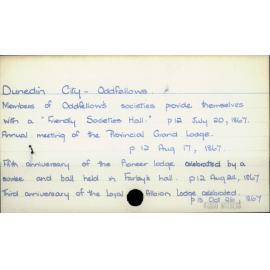 Dunedin City - Oddfellows.
Members of Oddfellows societies provide themselves
with a "Friendly Societies Hall." p12 July 20, 1867.
Annual meeting of the Provincial Grand Lodge.
p 12 Aug 17, 1867.
Fifth anniversary of the Pioneer lodge celebrated by a
soiree and ball held in Farley's hall. p 12 Aug 24, 1867.
Third anniversary of the Loyal Albion Lodge celebrated.
p 13 Oct 26, 1867